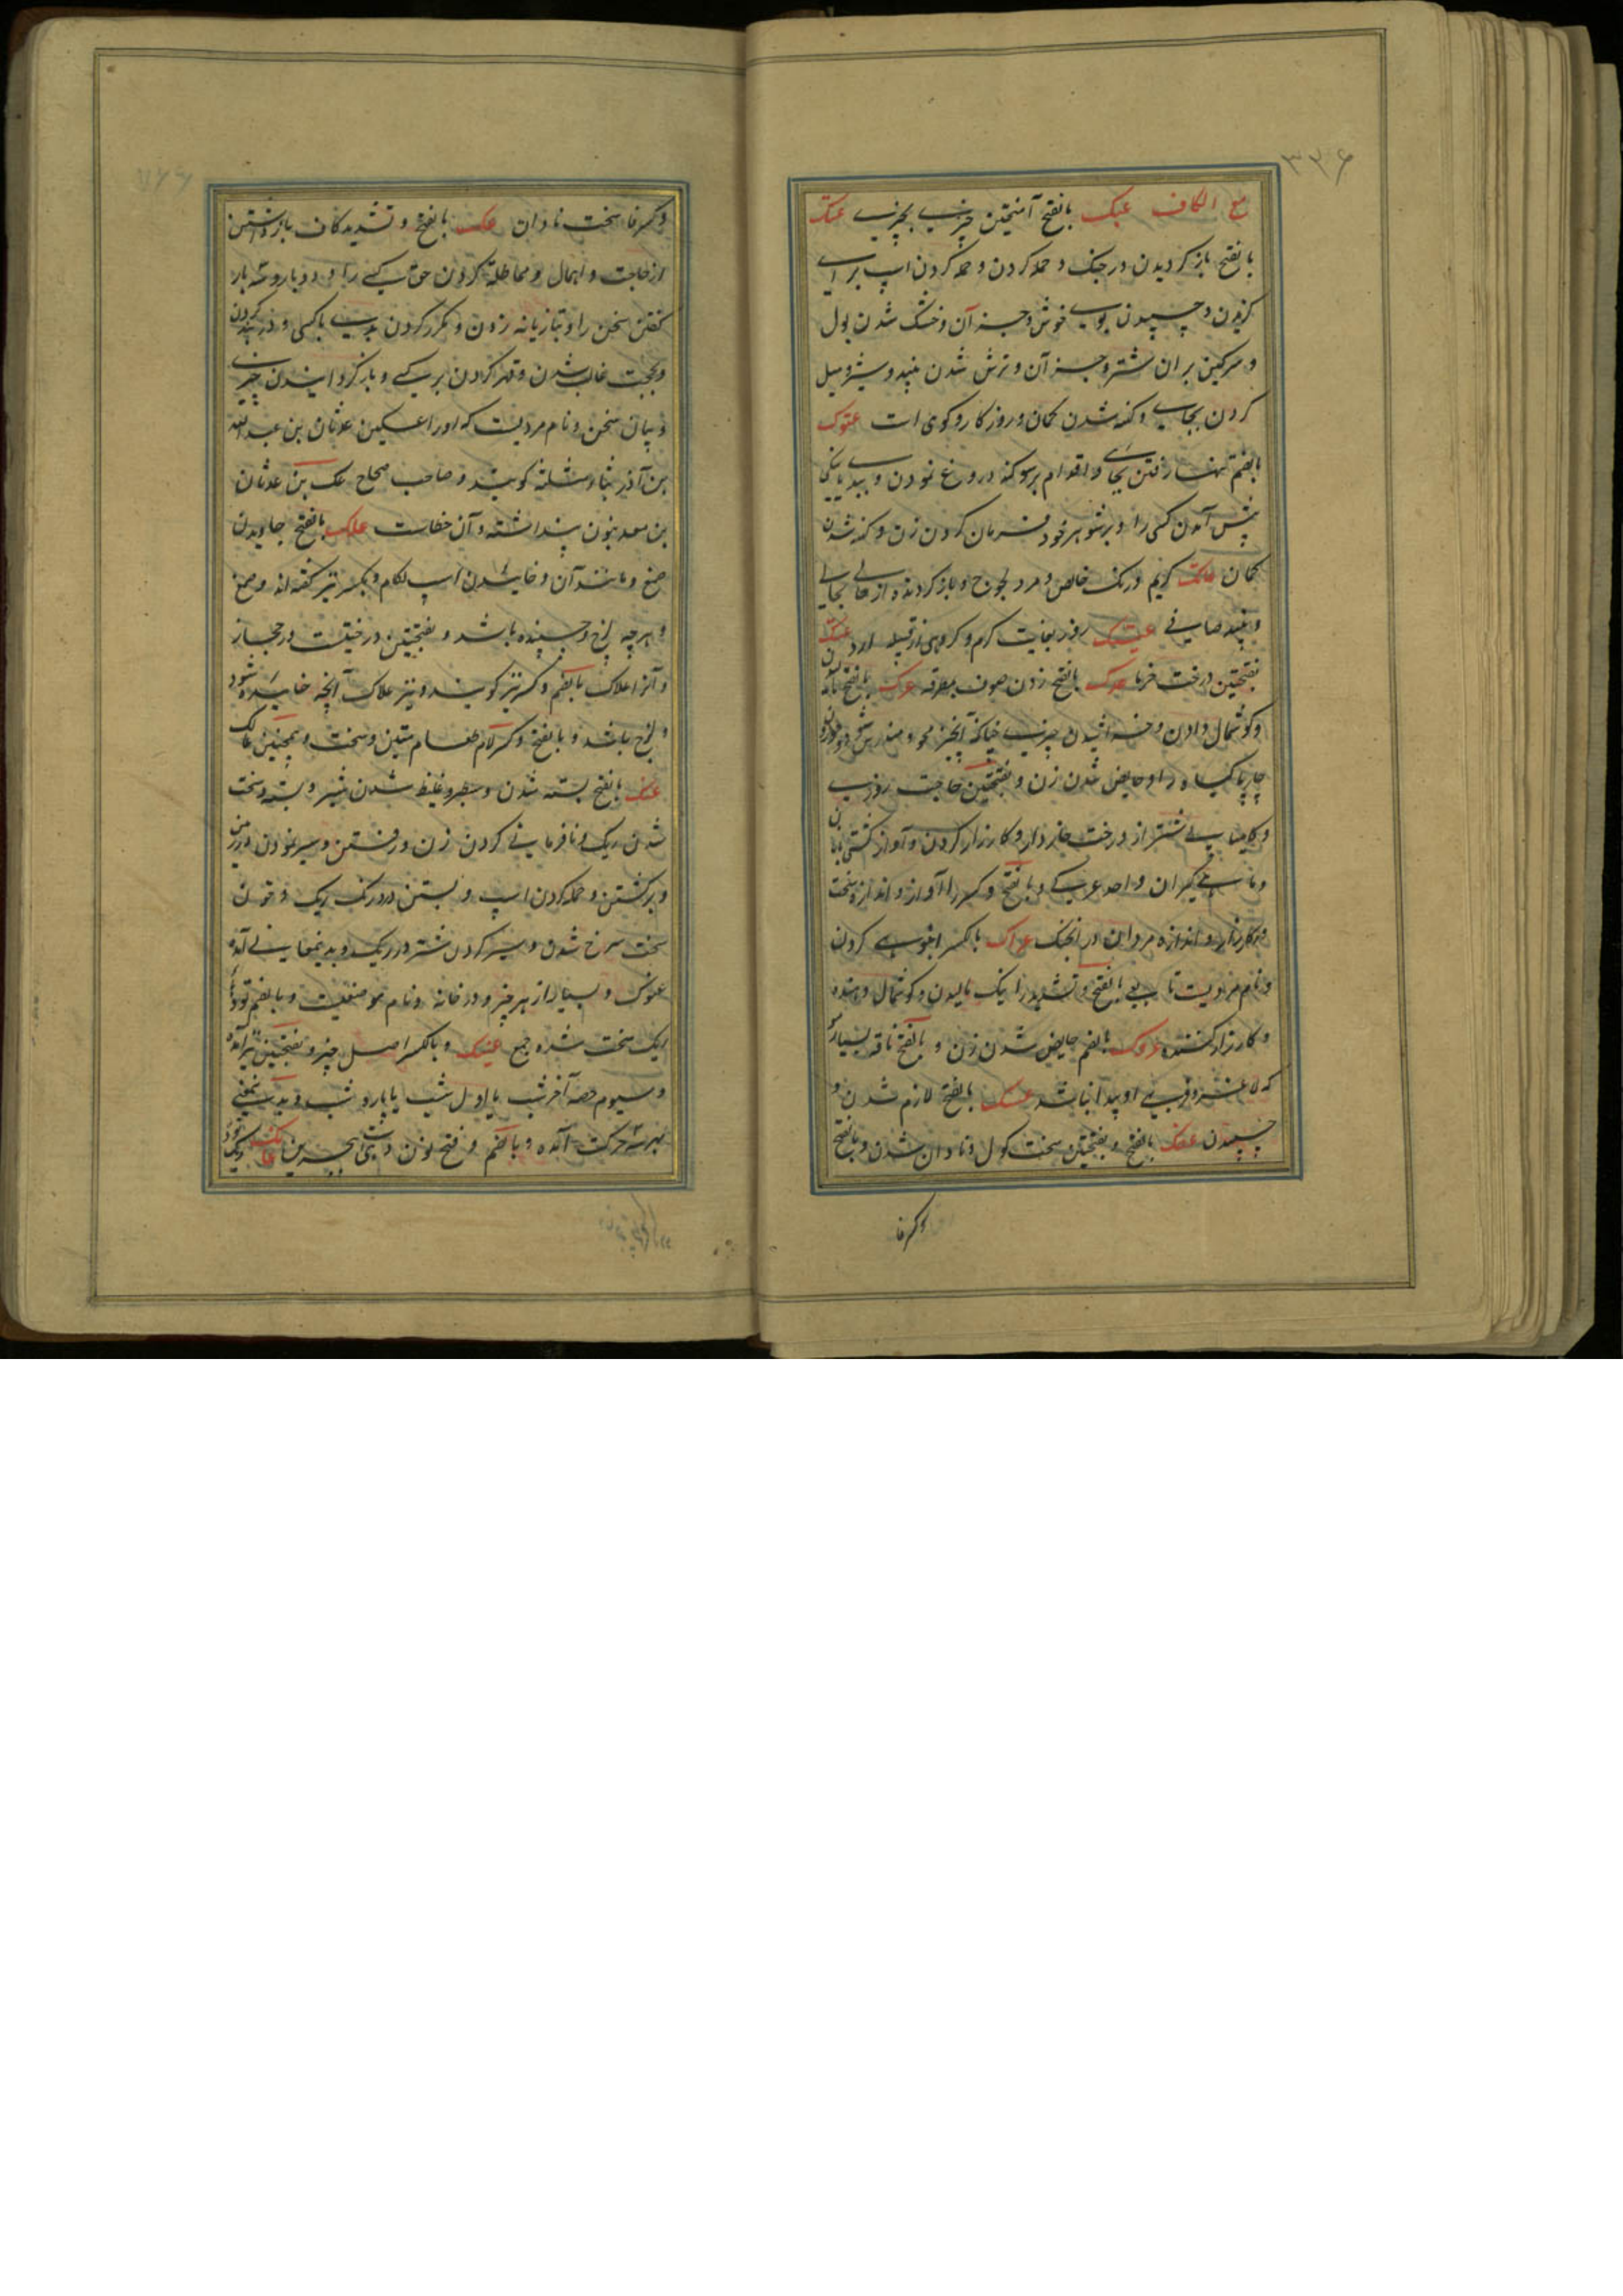 ۳۳۶
مع الکاف عبک بالفتح آمیختن چیزی بچیزی عتک
بالفتح باز کردیدن در جنک و حمله کردن و حمله کردن اسپ برای
کزیدن و چسپیدن بوی خوش و جز آن و خشک شدن بول
و سرکین بر ران شتر و جز آن و ترش شدن نبید و شیر و میل
کردن بجایی و کهنه شدن کمان و روزکار و کوهی است عتوک
بالضم تنها رفتن بجای و اقدام بر سوکند دروغ نمودن و ببدی یا نیکی
پیش آمدن کسی را و بر شوهر خود فرمان کردن زن و کهنه شدن
کمان عاتک کریم و رنک خالص و مرد لجوج و باز کردنده از حالی بحالی
و نبید صافی عتیک روز بغایت کرم و کروهی از قبیله ازد عثک
بفتحتین درخت خرما عدک بالفتح زدن صوف بمطرقه عرک بالفتح مالیدن
و کوشمال دادن و خراشیدن چیزی چنانکه آن چیز محو و مندرس شود و خوردن
چارپا کیاه را و حایض شدن زن و بفتحتین حاجت روزی
و کامیابی شتر از درخت خاردار و کارزار کردن و آواز کشتی بانان
و ماهی کیران واحد عرکی و بالفتح و کسر را آواز و انداز و سخت
در کارزار و اندازه مردان در جنک عراک بالکسر انبوهی کردن
و نام مردیست تابعی بالفتح و تشدید را نیک مالیدن و کوشمال دهنده
و کارزار کننده عروک بالضم حایض شدن زن و بالفتح ناقه بسیار مو
که لاغر و فربهی او پیدا نباشد عسک بالفتح لازم شدن و
چسپیدن عفک بالفتح و بفتحتین سخت کول و نادان شدن و بالفتح
وکسر فا
وکسر فا سخت نادان عک بالفتح و تشدید کاف باز داشتن
از حاجت و اهمال و مماطله کردن حق کسی را و دو بار و سه بار
کفتن سخن را و تازیانه زدن و مکرر کردن بدی با کسی و در بند کردن
و بحجت غالب شدن و قهر کردن بر کسی و باز کردانیدن چیزی
و بیان سخن و نام مردیست که او را عک بن عدثان بن عبد الله
بن آذر بثاء مثلثه کویند و صاحب صحاح عک بن عدنان
بن معد بنون پنداشته و آن خطاست علک بالفتح جاویدن
صمغ و مانند آن و خائیدن اسپ لکام و بکسر نیز کفته اند و صمغ
و هر چه لزج و چسپنده باشد و بفتحتین درختیست در حجاز
و آنرا علاک بالضم و کسر نیز کویند و نیز علاک آنچه خائیده شود
و لزج باشد و بالفتح و کسر لام طعام متین و سخت و همچنین عالک
عنک بالفتح بسته شدن و سطبر و غلیظ شدن شیر و بسته و سخت
شدن ریک و نافرمانی کردن زن و رفتن و سیر نمودن در زمین
و برکشتن و حمله کردن اسپ و بستن در و رنک ریک و خون
سخت سرخ شدن و سیر کردن شتر در ریک و بدینمعانی آمده
عنوک و بسیار از هر چیز و در خانه و نام موضعیست و بالضم تودهای
ریک سخت شده جمع عنیک و بالکسر اصل چیز و بفتحتین نیز آمده
و سیوم حصه آخر شب یا اول شب یا پاره شب و بدینمعنی
بهر سه حرکت آمده و بالضم و فتح نون دهی است ببحرین عانک توده ریک